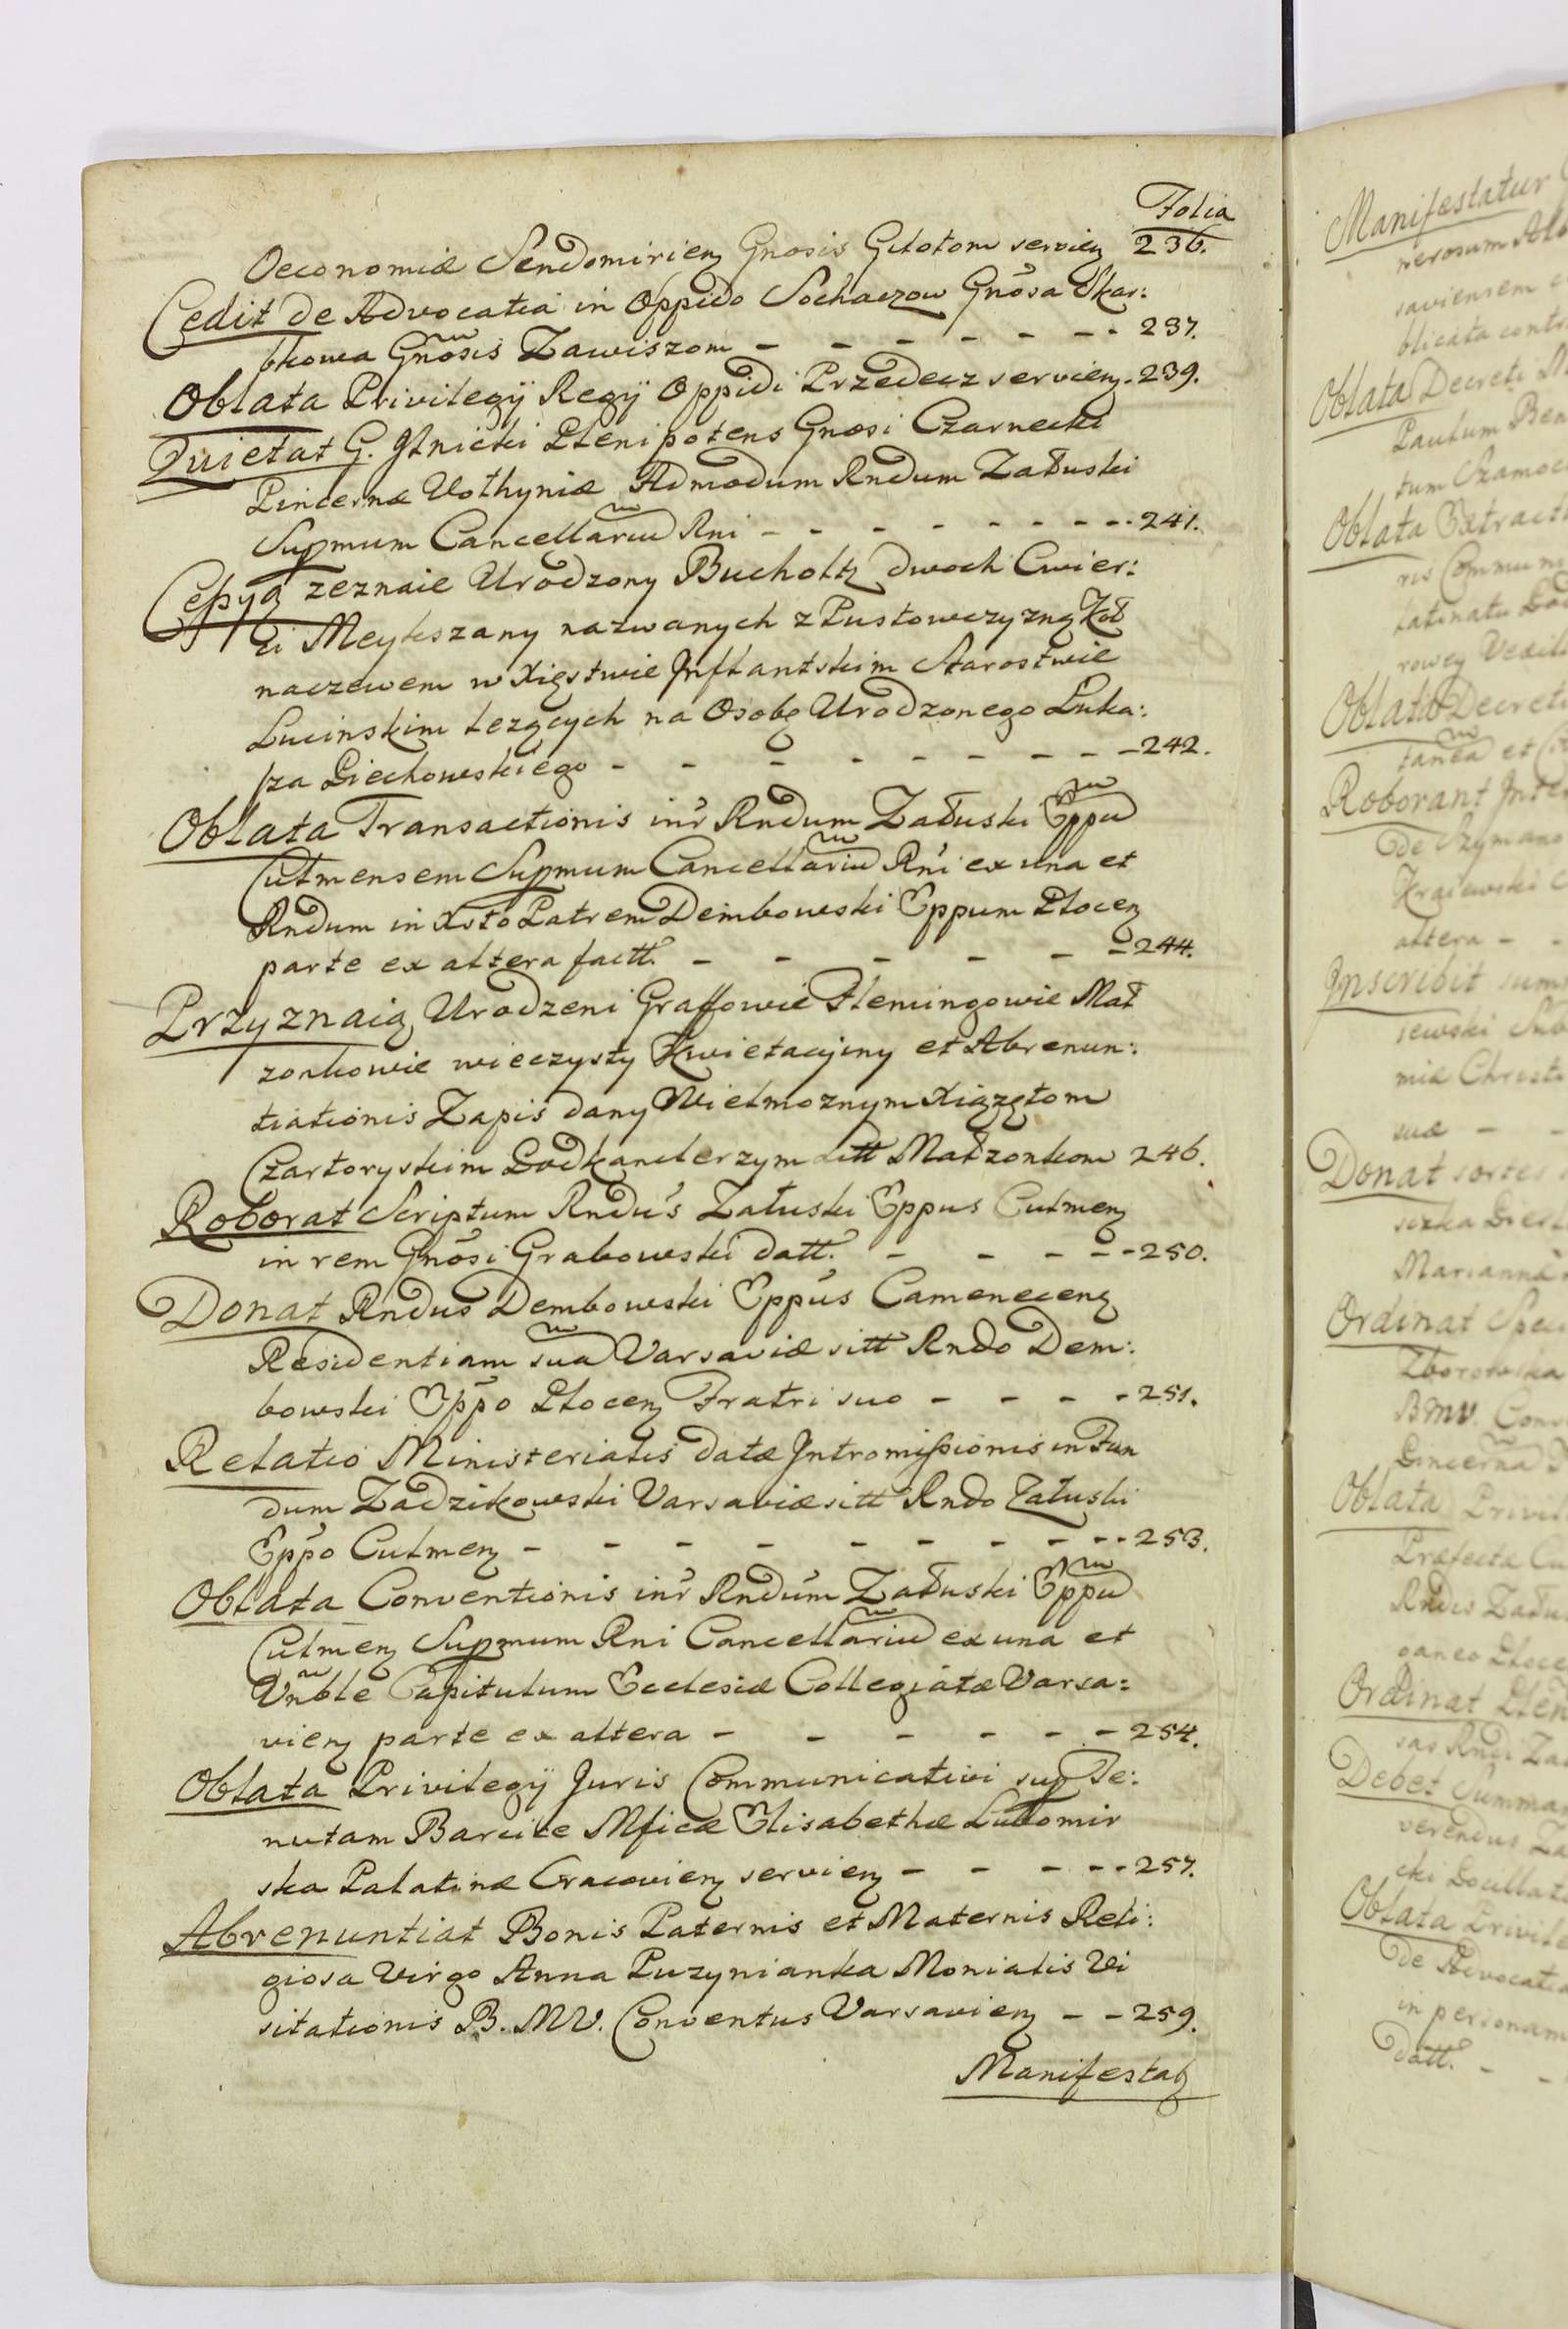 Folia
Oeconomiæ Sendomirien Gnosis Glotom servien 236.
Cedit de Advocatia in Oppido Sochaczow Gnosa Skar:
bkowa Gnosis Zawiszom - - - - - - - 237.
Oblata Privilegÿ Regÿ Oppidi Przedecz servien. 239.
Quietat G. Ilnicki Plenipotens Gnosi Czarnecki
Pincernæ Volhyniæ Admodum Rndum Załuski
Supmum Cancellariu Rni - - - - - - - - 241.
Cessyą zeznaie Urodzony Bucholtz dwoch Cwier:
ci Meykszany nazwanych z Pustowczyzną
naczewem w Xięstwie Inflantskim Starostwie
Lucinskim lezących na Osobę Urodzonego Luka:
sza Piechowskiego - - - - - - - - 242.
Oblata Transactionis inr Rndum Załuski Eppu
Culmensem Supmum Cancellariu Rni ex una et
Rndum in Xsto Patrem Dembowski Eppum Plocen
parte ex altera factt. - - - - - - 244.
Przyznaią Urodzeni Graffowie Flemingowie Mał
zonkowie wieczysty Kwietacyiny et Abrenun:
tiationis Zapis dany Wielmoznym Xiązętom
Czartoryskim Podkanclerzym Litt Małzonkom 246.
Roborat Scriptum Rndus Załuski Eppus Culmen
in rem Gnosi Grabowski datt. - - - - - 250.
Donat Rndus Dembowski Eppus Camenecen
Residentiam sua Varsaviæ sitt Rndo Dem:
bowski Eppo Plocen Fratri suo - - - - 251.
Relatio Ministerialis datæ Intromissionis in Fun
dum Zadzikowski Varsaviæ sitt Rndo Załuski
Eppo Culmen - - - - - - - - - 253.
Oblata Conventionis inr Rndum Załuski Eppu
Culmen Supmum Rni Cancellariu ex una et
Vnble Capitulum Ecclesiæ Collegiatæ Varsa:
vien parte ex altera - - - - - - 254.
Oblata Privilegÿ Juris Communicativi sup Te:
nutam Barcice Mficæ Elisabethæ Lubomir
ska Palatinæ Cracovien servien - - - - - 257.
Abrenuntiat Bonis Paternis et Maternis Reli:
giosa Virgo Anna Puzynianka Monialis Vi
sitationis B. M V. Conventus Varsavien - - 259.
Manifestat
Manifestatur
saviensem
blicata contr
Oblata Decreti
Paulum
Oblata Extract
Oblata Decreti
Roborant
de Szymano
Krajewski
altera - -
Inscribit sum
suæ - -
Donat sortes
Marianna
Ordinat
Zborowska
BMV. Conv
Oblata Privi
Rndis Zału
Ordinat Plen
Debet Summa
Oblata Privile
de Advocatia
in personam
datt. - -